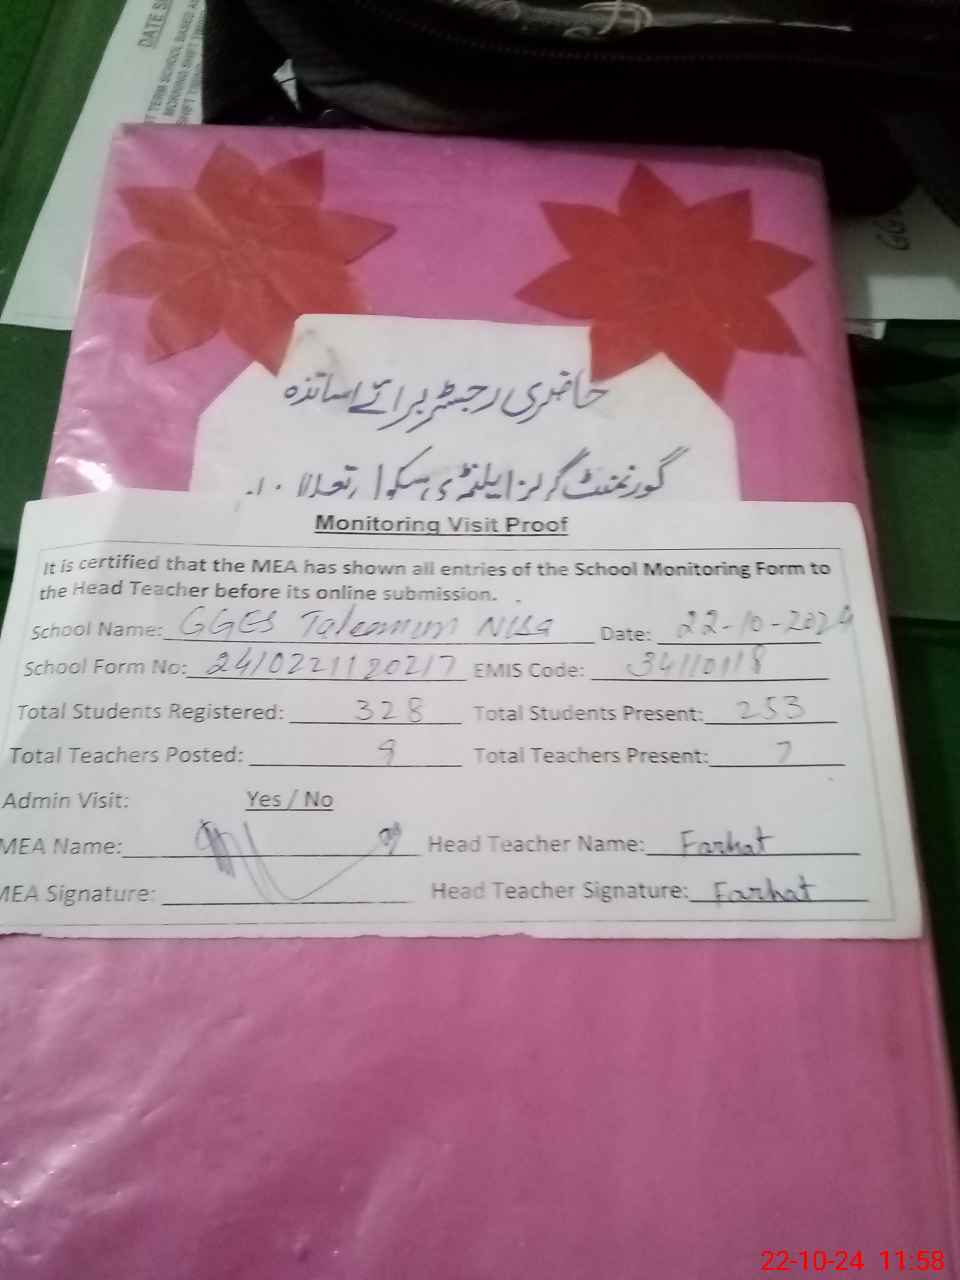 DATE S
T TERM SCHOOL BASED A
MORNING SHIFT
حاضری رجسٹر برائے اساتذہ
گورنمنٹ گرلز ایلیمنٹری سکول
Monitoring Visit Proof
It is certified that the MEA has shown all entries of the School Monitoring Form to
the Head Teacher before its online submission.
School Name: GGES Taleemun Nisa Date: 22-10-2024
School Form No: 2410221120217 EMIS Code: 34110118
Total Students Registered: 328 Total Students Present: 253
Total Teachers Posted: 9 Total Teachers Present: 7
Admin Visit: Yes / No
MEA Name: Head Teacher Name: Farhat
MEA Signature: Head Teacher Signature: Farhat
22-10-24 11:58